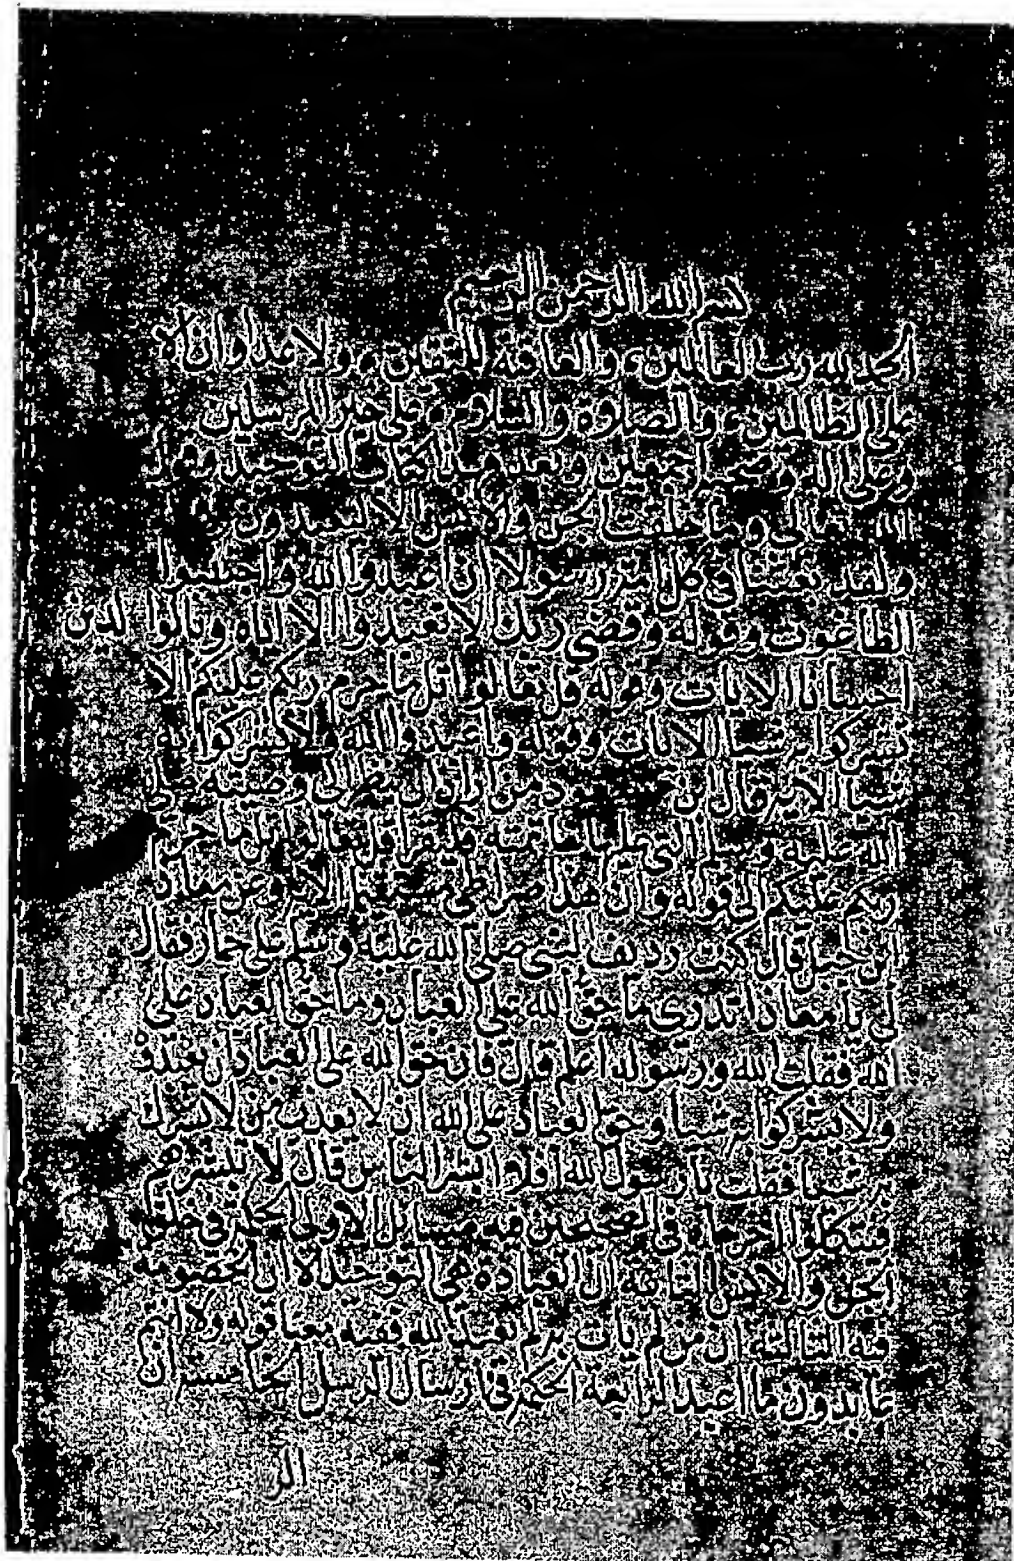 بسم الله الرحمن الرحيم
الحمد لله رب العالمين والعاقبه للمتقين ولا عدوان الا
على الظالمين والصلاة والسلام على خير المرسلين
وعلى اله وصحبه اجمعين وبعد هذا كتاب التوحيد وقول
الله تعالى وما خلقت الجن والانس الا ليعبدون
ولقد بعثنا في كل امة رسولا ان اعبدوا الله واجتنبوا
الطاغوت وقوله وقضى ربك لا تعبدوا الا اياه وبالوالدين
احسانا الايات وقوله قل تعالوا اتل ما حرم ربكم عليكم الا
تشركوا به شيئا الايات وقوله واعبدوا الله ولا تشركوا به
شيئا الايه قال بن مسعود من اراد ان ينظر الى وصية محمد صلى
الله عليه وسلم التي عليها خاتمته فليقرا قل تعالوا اتل ما حرم
ربكم عليكم الى قوله وان هذا صراطي مستقيما الايه وعن معاذ
ابن جبل قال كنت رديف النبي صلى الله عليه وسلم على حمار فقال
لي يا معاذ اتدري ما حق الله على العباد وما حق العباد على
الله فقلت الله ورسوله اعلم قال فان حق الله على العباد ان يعبدوه
ولا يشركوا به شيئا وحق العباد على الله ان لا يعذب من لا يشرك
به شيئا فقلت يا رسول الله افلا ابشر الناس قال لا تبشرهم
فيتكلوا اخرجاه في الصحيحين فيه مسايل الاولى الحكمة في خلق
الجن والانس الثانيه ان العبادة هي التوحيد لان الخصومه
فيه الثالثة ان من لم يات به لم يعبد الله ففيه معنا قوله ولا انتم
عابدون ما اعبد الرابعة الحكمة في ارسال الرسل الخامسة ان
الر